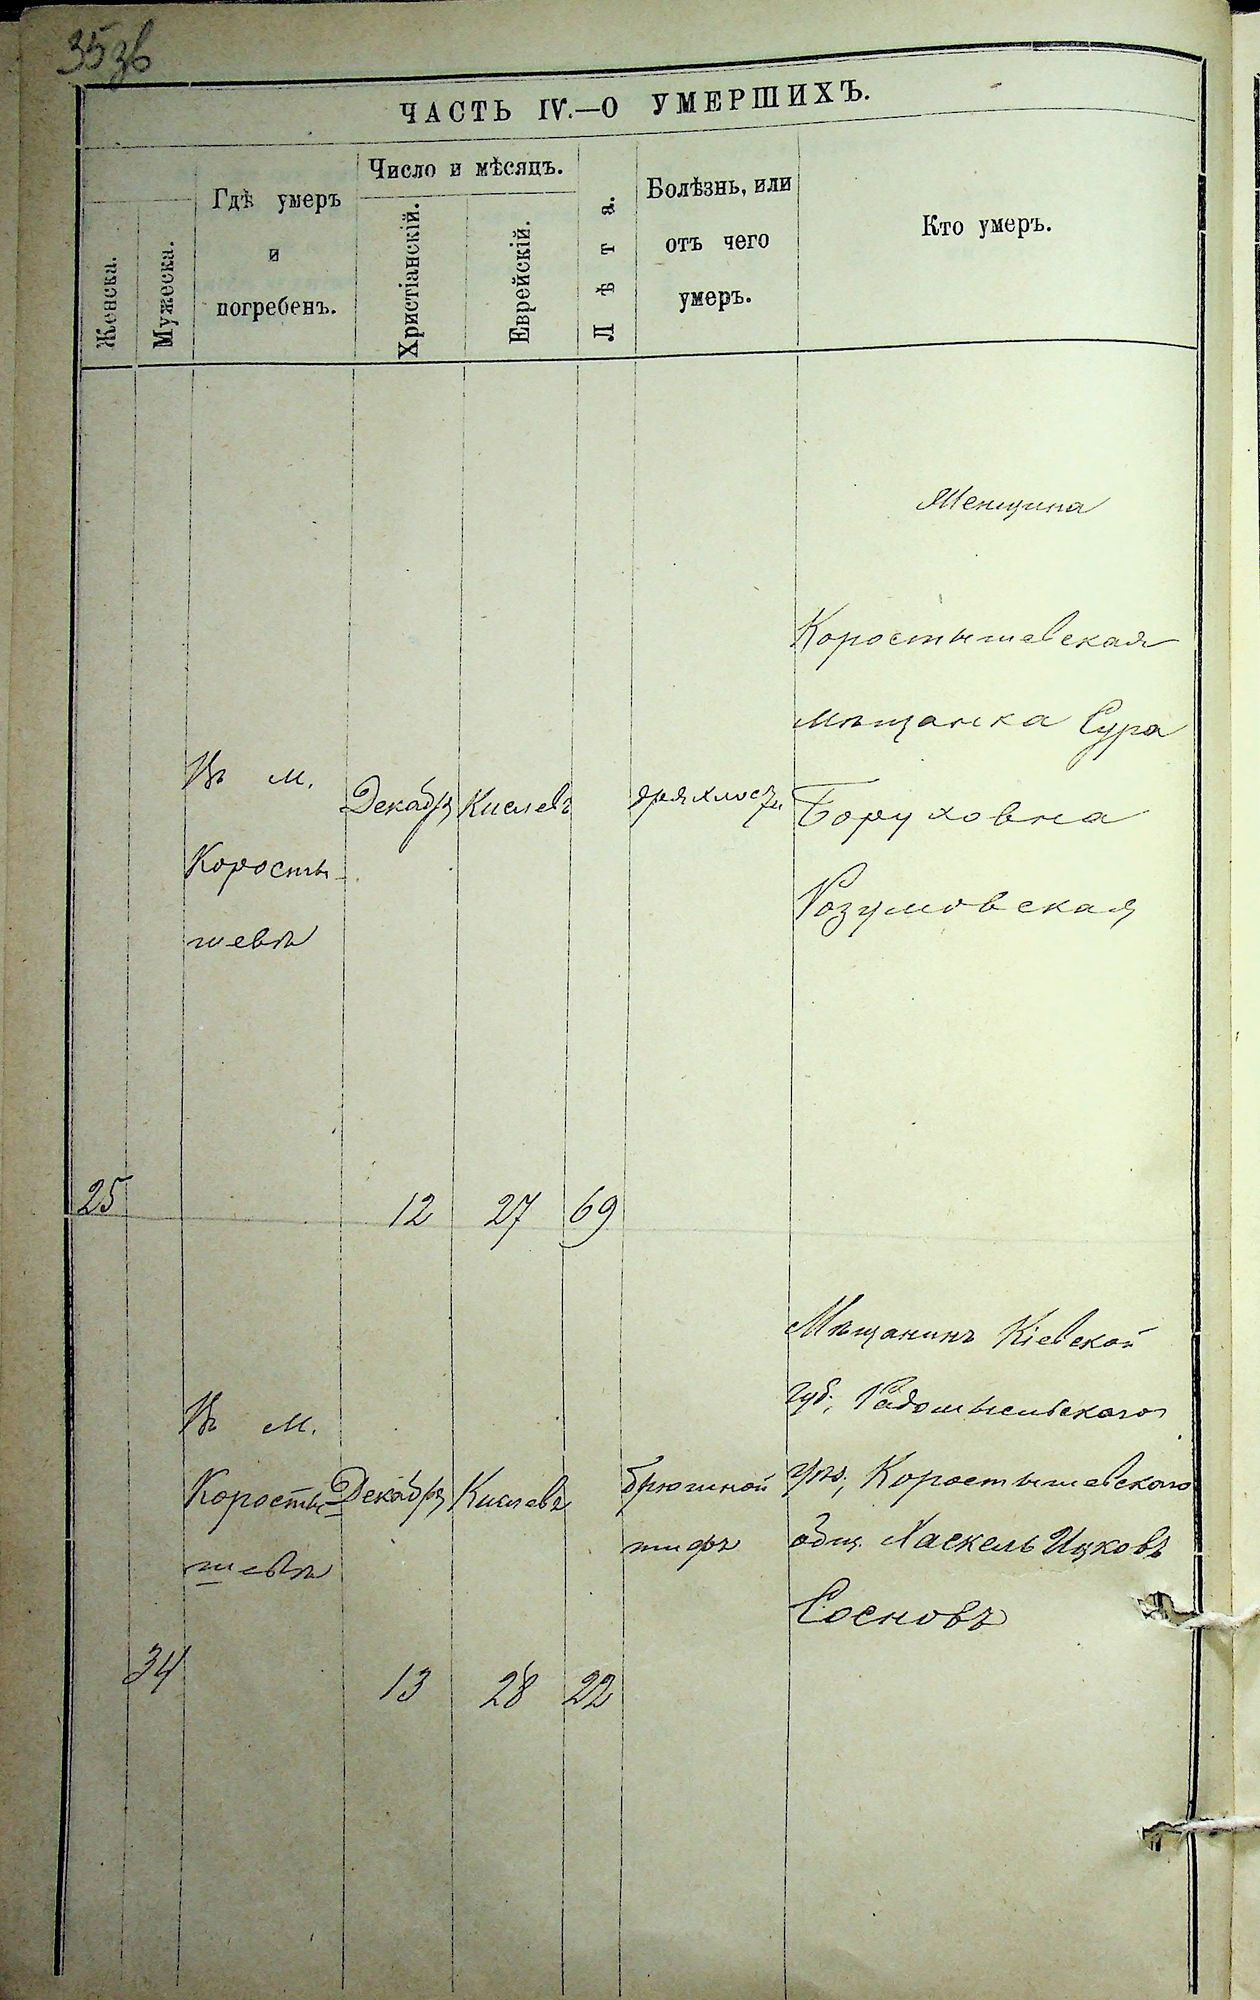 35зв
ЧАСТЬ IV.—О УМЕРШИХЪ.
Женска.
Мужеска.
Гдѣ умеръ
и
погребенъ.
Число и мѣсяцъ.
Христіанскій.
Еврейскій.
Лѣта.
Болѣзнь, или
отъ чего
умеръ.
Кто умеръ.
Женщина
Коростышевская
мѣщанка Сура
Боруховна
Розумовская
Въ м.
Коросты-
шевѣ
Декабр
Кислевъ
дряхлость
25
12
27
69
Мѣщанинъ Кіевской
губ., Радомысльскаго
уѣз., Коростышевскаго
общ. Хаскель Ицковъ
Сосновъ
Въ м.
Коросты-
шевѣ
Декабр
Кислевъ
брюшной
тифъ
34
13
28
22